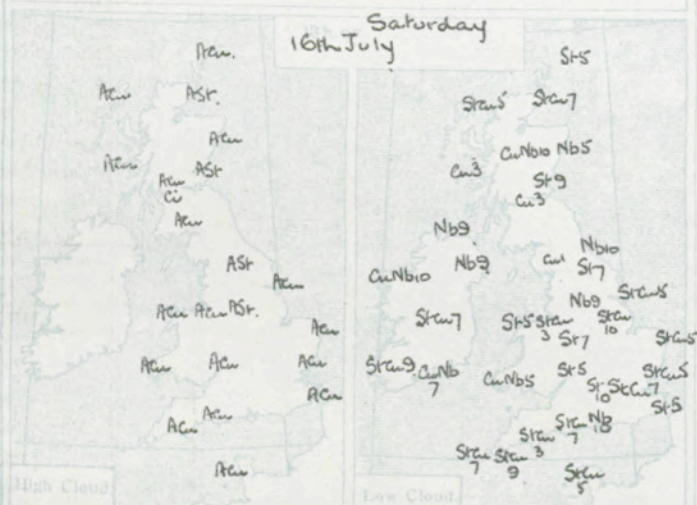 Saturday
16th July
ACu.
ACu
ASt.
ACu
ACu
ASt
ACu
Ci
ACu
ASt
ACu
ACu
ACu
ASt.
ACu
ACu
ACu
ACu
ACu
ACu
ACu
ACu
High Cloud
St5
StCu5
StCu7
CuNb10
Nb5
Cu3
St9
Cu3
Nb9
Nb10
Nb9
Cu1
St7
CuNb10
Nb9
StCu5
StCu7
St5
StCu
3
StCu
10
St7
StCu5
StCu9
CuNb
7
CuNb5
St5
StCu5
St
10
StCu7
St5
StCu
7
Nb
10
StCu
3
StCu
7
StCu
9
StCu
5
Low Cloud